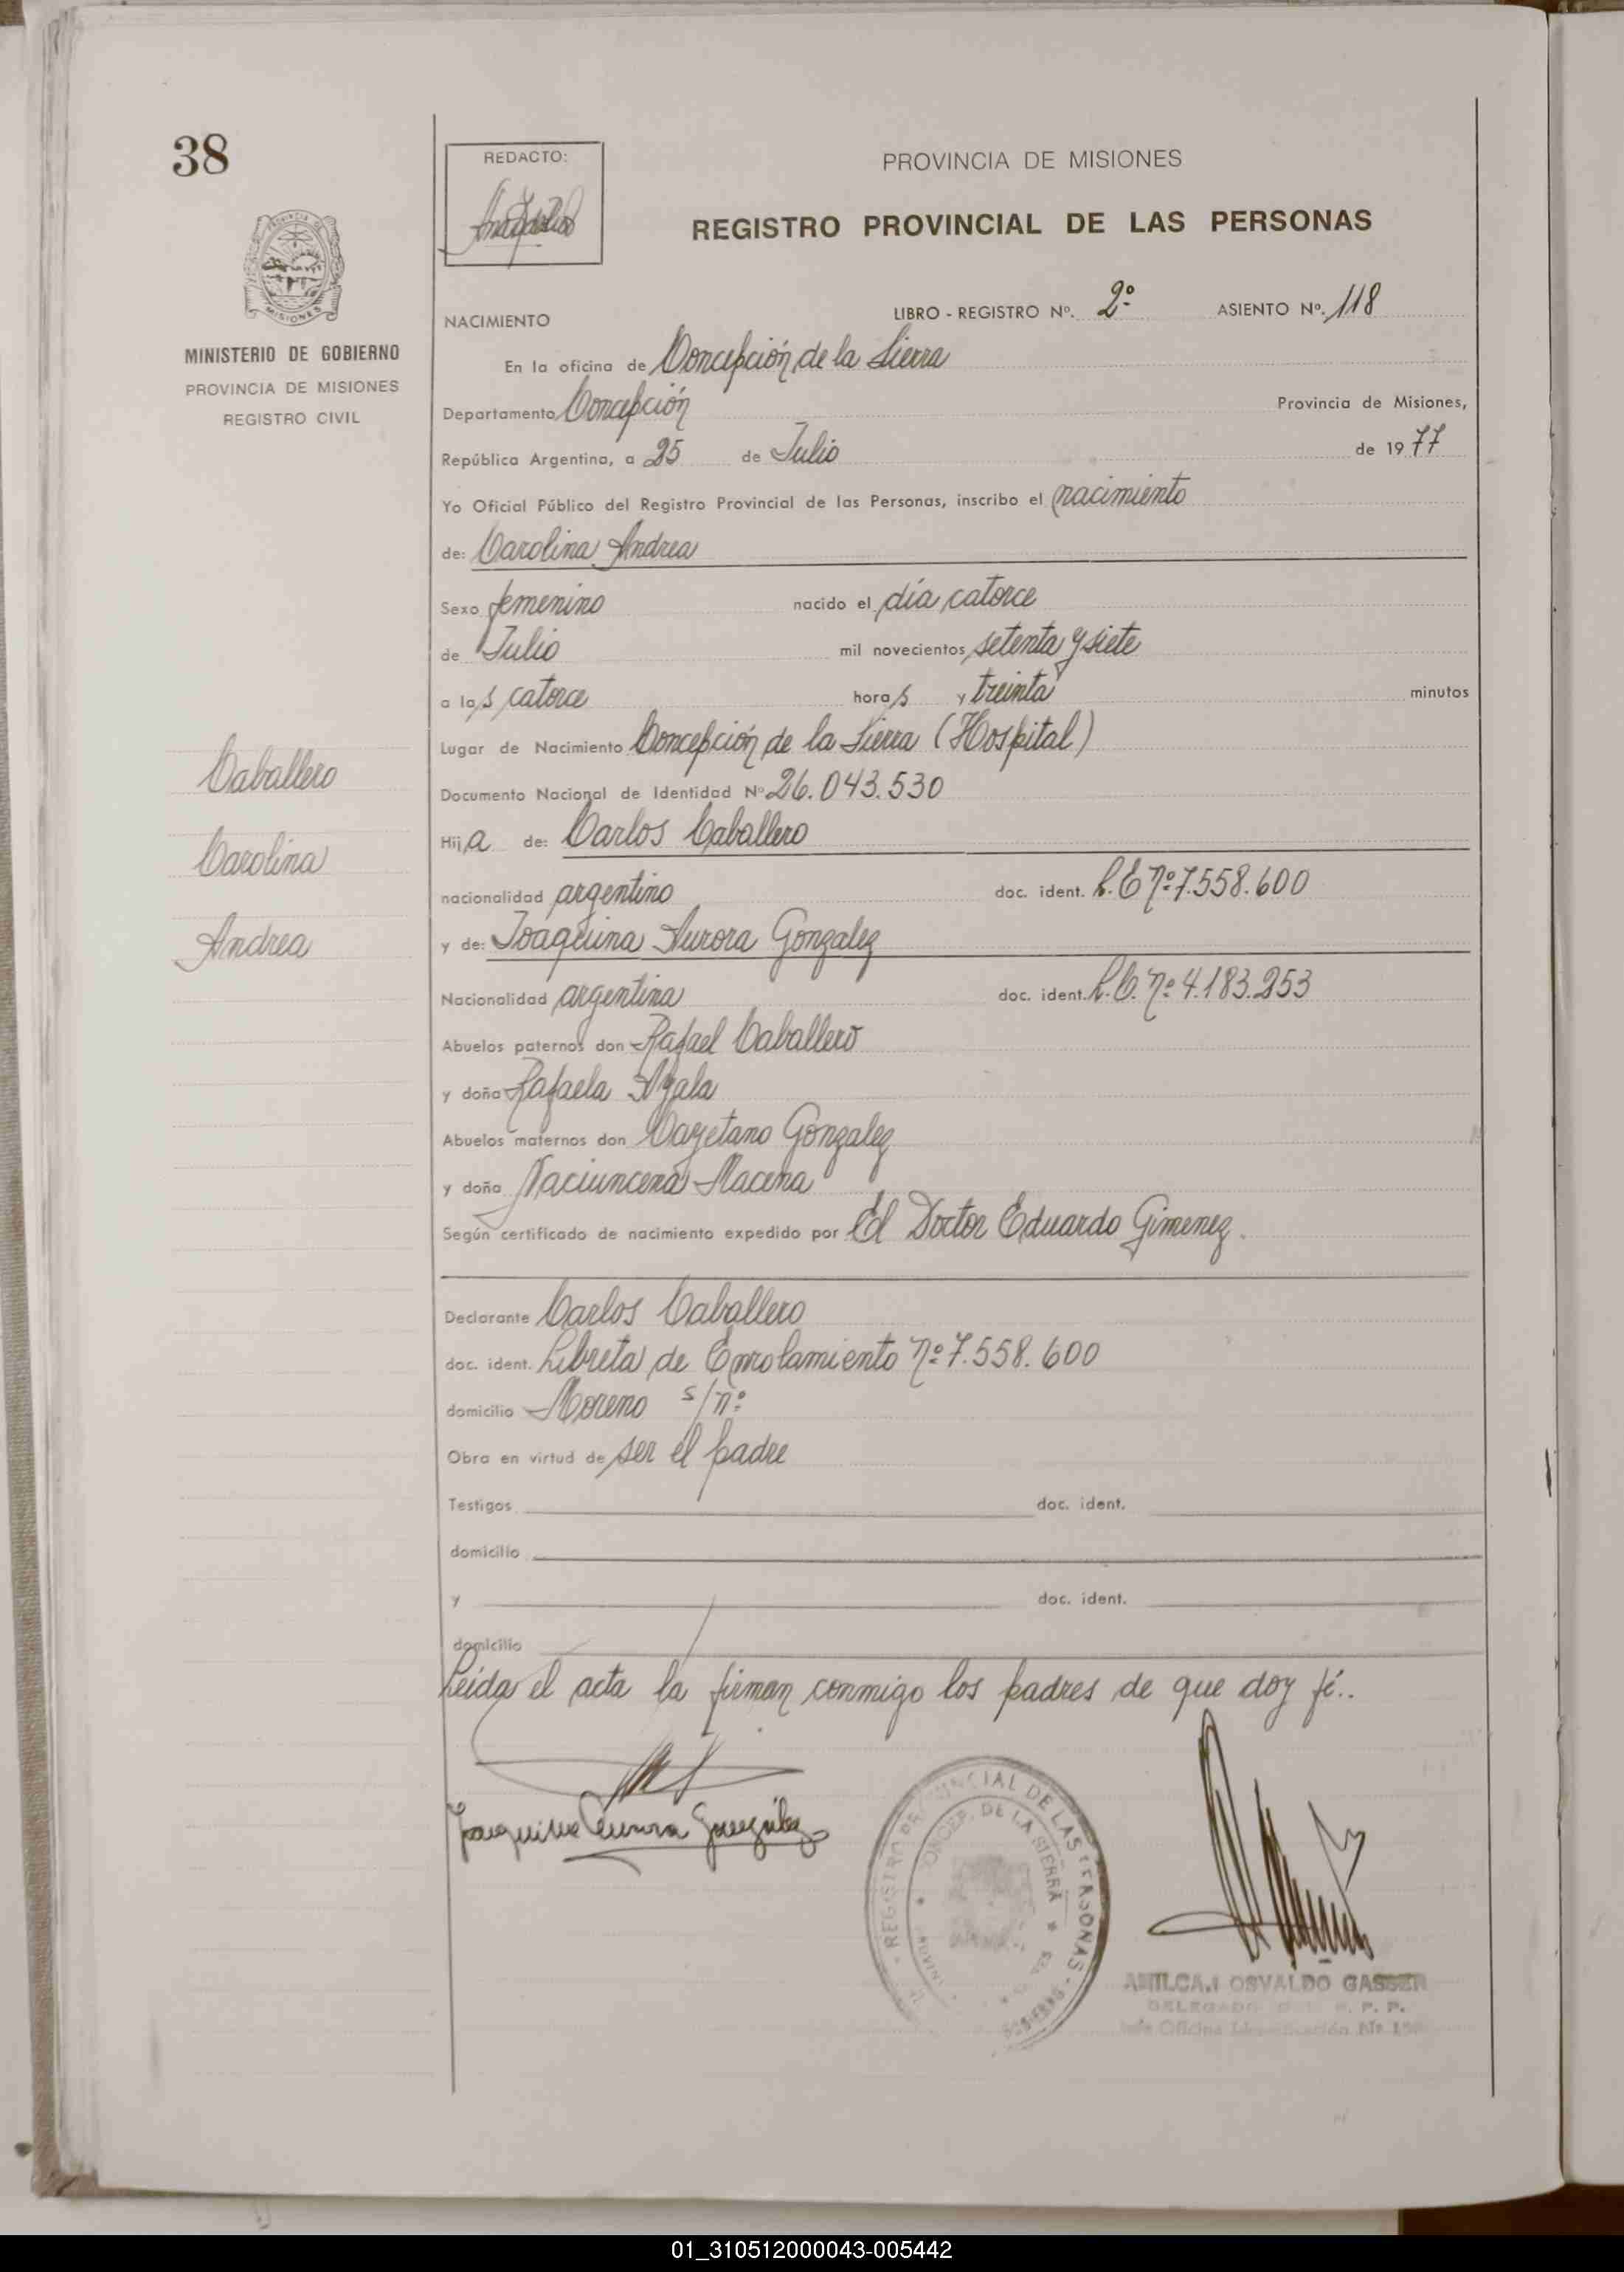 38
REDACTO:
PROVINCIA DE MISIONES
REGISTRO PROVINCIAL DE LAS PERSONAS
PROVINCIA DE
MISIONES
MINISTERIO DE GOBIERNO
PROVINCIA DE MISIONES
REGISTRO CIVIL
LIBRO - REGISTRO Nº. 2º ASIENTO Nº. 118
NACIMIENTO
En la oficina de Concepción de la Sierra
Departamento Concepción Provincia de Misiones,
República Argentina, a 25 de Julio de 1977
Yo Oficial Público del Registro Provincial de las Personas, inscribo el nacimiento
de: Carolina Andrea
Sexo femenino nacido el día catorce
de Julio mil novecientos setenta y siete
a las catorce horas y treinta minutos
Lugar de Nacimiento Concepción de la Sierra (Hospital)
Documento Nacional de Identidad Nº 26.043.530
Hija de: Carlos Caballero
nacionalidad argentino doc. ident. L.E nº 7.558.600
y de: Joaquina Aurora Gonzalez
Nacionalidad argentina doc. ident. L.C. nº 4.183.253
Abuelos paternos don Rafael Caballero
y doña Rafaela Ayala
Abuelos maternos don Cayetano Gonzalez
y doña Naciuncena Macena
Según certificado de nacimiento expedido por El Doctor Eduardo Gimenez.
Caballero
Carolina
Andrea
Declarante Carlos Caballero
doc. ident. Libreta de Enrolamiento nº 7.558.600
domicilio Moreno s/nº
Obra en virtud de ser el padre
Testigos doc. ident.
domicilio
y doc. ident.
domicilio
Leída el acta la firman conmigo los padres de que doy fé..
Joaquina Aurora Gonzalez
REGISTRO PROVINCIAL DE LAS PERSONAS
CONCEP. DE LA SIERRA
AMILCAR OSVALDO GASSER
DELEGADO
01_310512000043-005442